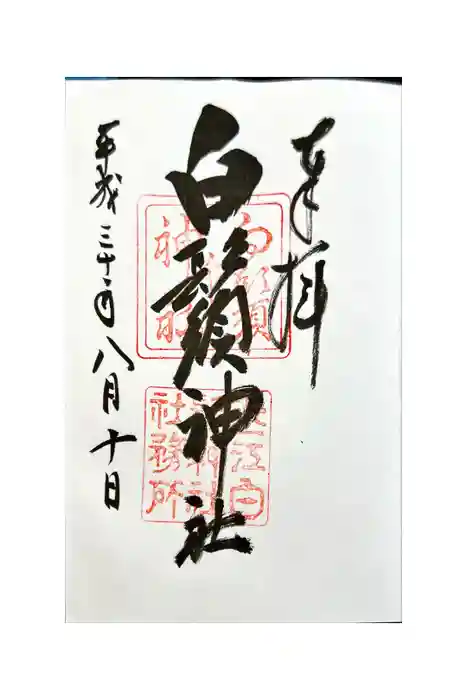 奉拝
白鬚神社
平成三十年八月十日
近江白
鬚神社
社務所